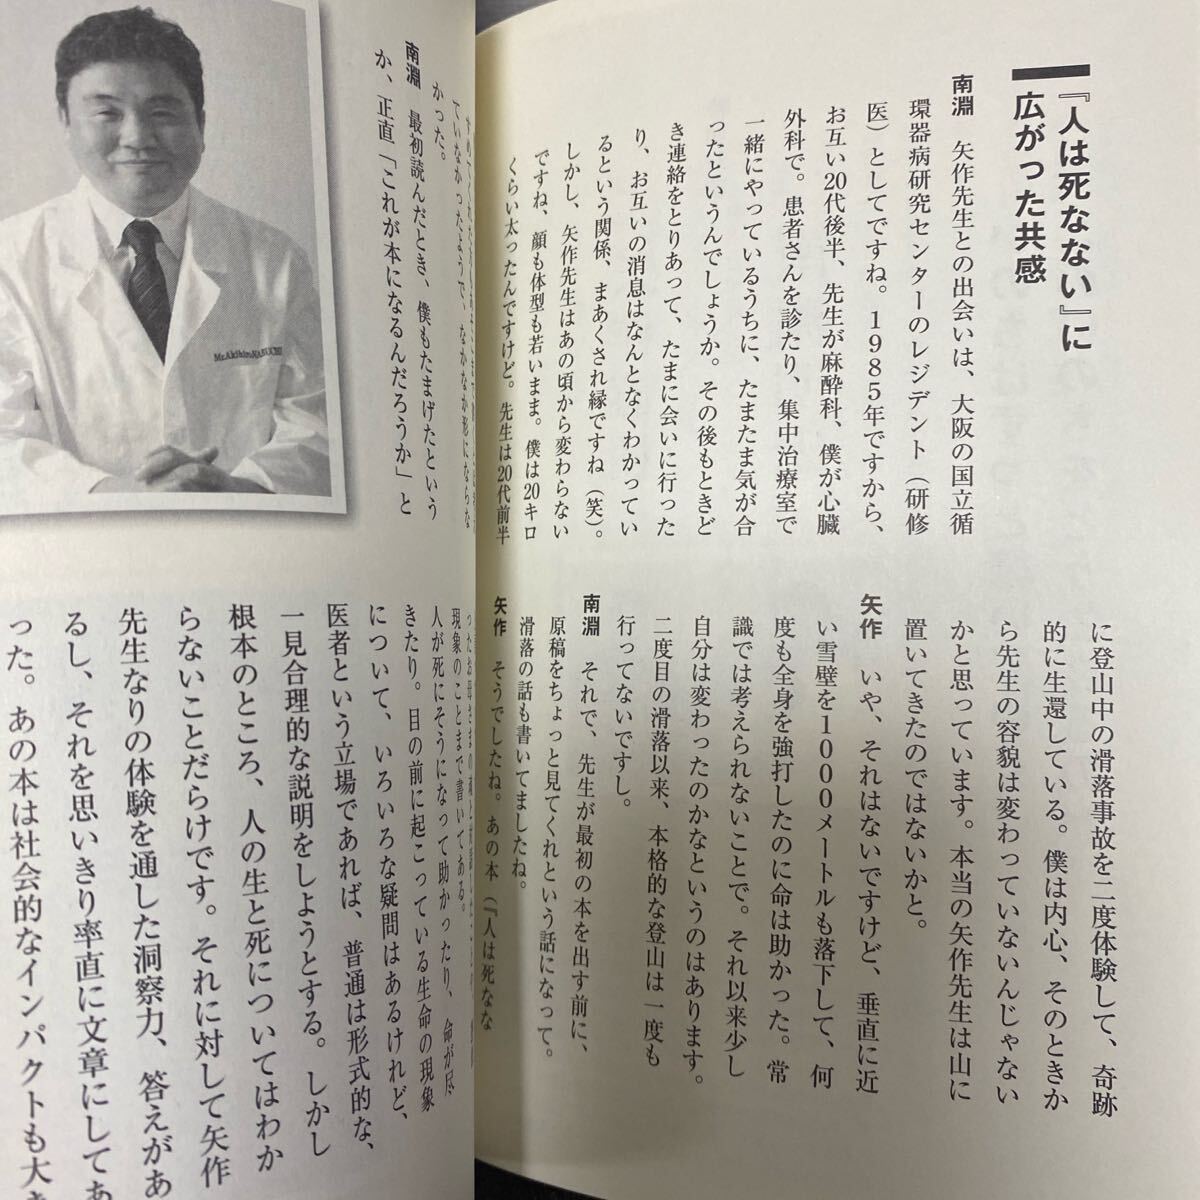 『人は死なない』に
広がった共感
南淵　矢作先生との出会いは、大阪の国立循
環器病研究センターのレジデント（研修
医）としてですね。1985年ですから、
お互い20代後半、先生が麻酔科、僕が心臓
外科で。患者さんを診たり、集中治療室で
一緒にやっているうちに、たまたま気が合
ったというんでしょうか。その後もときど
き連絡をとりあって、たまに会いに行った
り、お互いの消息はなんとなくわかってい
るという関係、まあくされ縁ですね（笑）。
しかし、矢作先生はあの頃から変わらない
ですね、顔も体型も若いまま。僕は20キロ
くらい太ったんですけど。先生は20代前半
に登山中の滑落事故を二度体験して、奇跡
的に生還している。僕は内心、そのときか
ら先生の容貌は変わっていないんじゃない
かと思っています。本当の矢作先生は山に
置いてきたのではないかと。
矢作　いや、それはないですけど、垂直に近
い雪壁を1000メートルも落下して、何
度も全身を強打したのに命は助かった。常
識では考えられないことで。それ以来少し
自分は変わったのかなというのはあります。
二度目の滑落以来、本格的な登山は一度も
行ってないですし。
南淵　それで、先生が最初の本を出す前に、
原稿をちょっと見てくれという話になって。
滑落の話も書いてましたね。
矢作　そうでしたね。あの本（『人は死なな
ていなかったようで、なかなか形にならな
かった。
南淵　最初読んだとき、僕もたまげたという
か、正直「これが本になるんだろうか」と
Mr.Akihiro NABUCHI
現象のことまで書いてある。
人が死にそうになって助かったり、命が尽
きたり。目の前に起こっている生命の現象
について、いろいろな疑問はあるけれど、
医者という立場であれば、普通は形式的な、
一見合理的な説明をしようとする。しかし
根本のところ、人の生と死についてはわか
らないことだらけです。それに対して矢作
先生なりの体験を通した洞察力、答えがあ
るし、それを思いきり率直に文章にしてあ
った。あの本は社会的なインパクトも大き